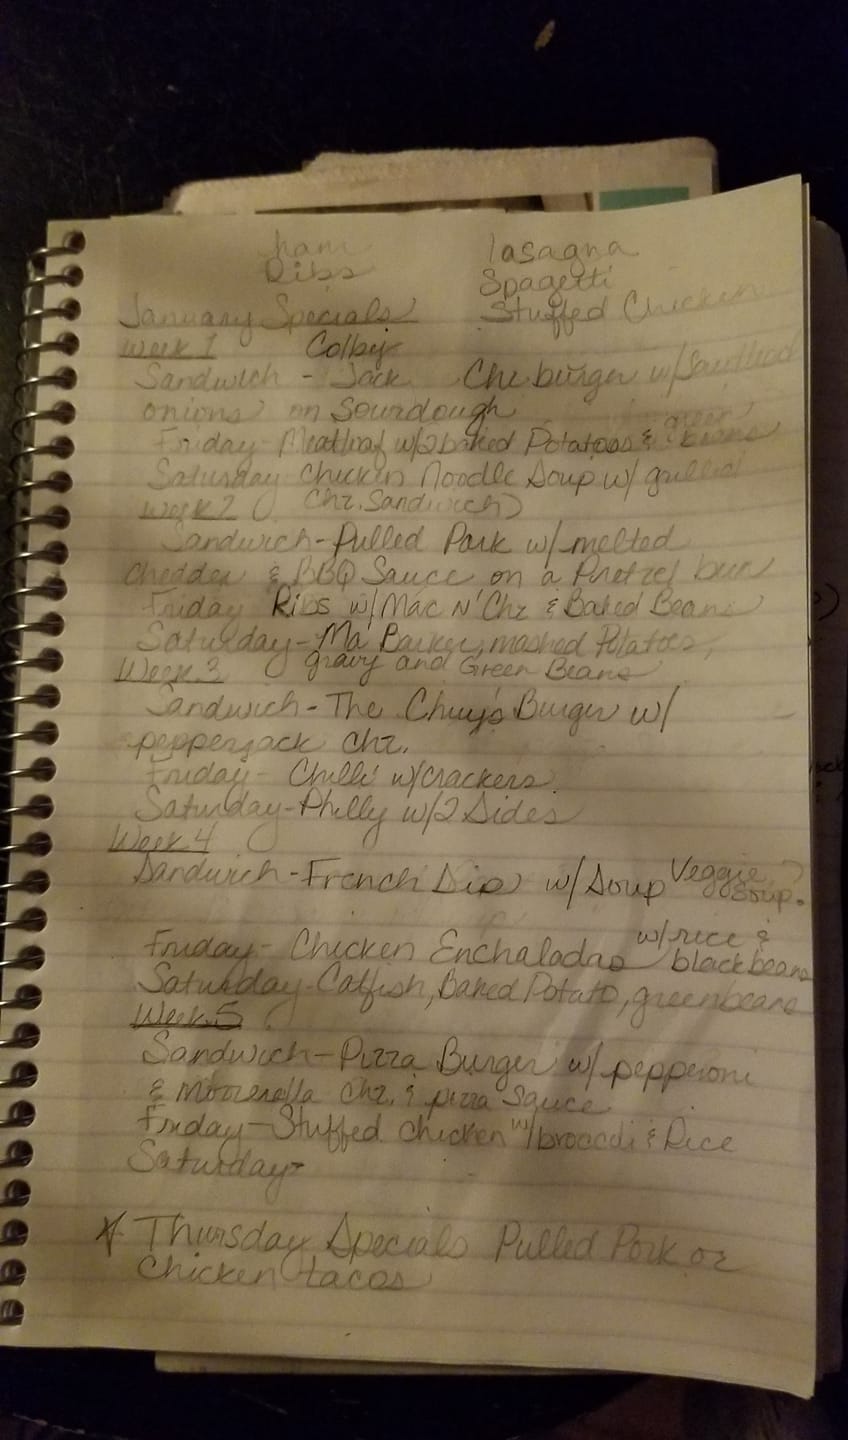 ham
Ribs
lasagna
Spagetti
Stuffed Chicken
January Specials
Week 1 Colby
Sandwich - Jack Chz burger w/
onions on Sourdough
green
Friday - Meatloaf w/2 baked Potatoes & beans
Saturday - Chicken Noodle Soup w/ grilled
Week 2 Chz. Sandwich
Sandwich - Pulled Pork w/ melted
Chedder & BBQ Sauce on a Pretzel bun
Friday Ribs w/ Mac N' Chz & Baked Beans
Saturday - Ma Barker, mashed Potatoes,
Week 3 gravy and Green Beans
Sandwich - The Chuy's Burger w/
pepperjack chz.
Friday - Chilli w/crackers
Saturday - Philly w/2 Sides
Week 4
Sandwich - French Dip w/ Soup Veggie ?
Soup.
w/ rice &
Friday - Chicken Enchaladas black beans
Saturday - Catfish, Baked Potato, greenbeans
Week 5
Sandwich - Pizza Burger w/ pepperoni
& Mozzerella Chz. & pizza Sauce
Friday - Stuffed Chicken w/ broccoli & Rice
Saturday -
* Thursday Specials Pulled Pork or
Chicken tacos